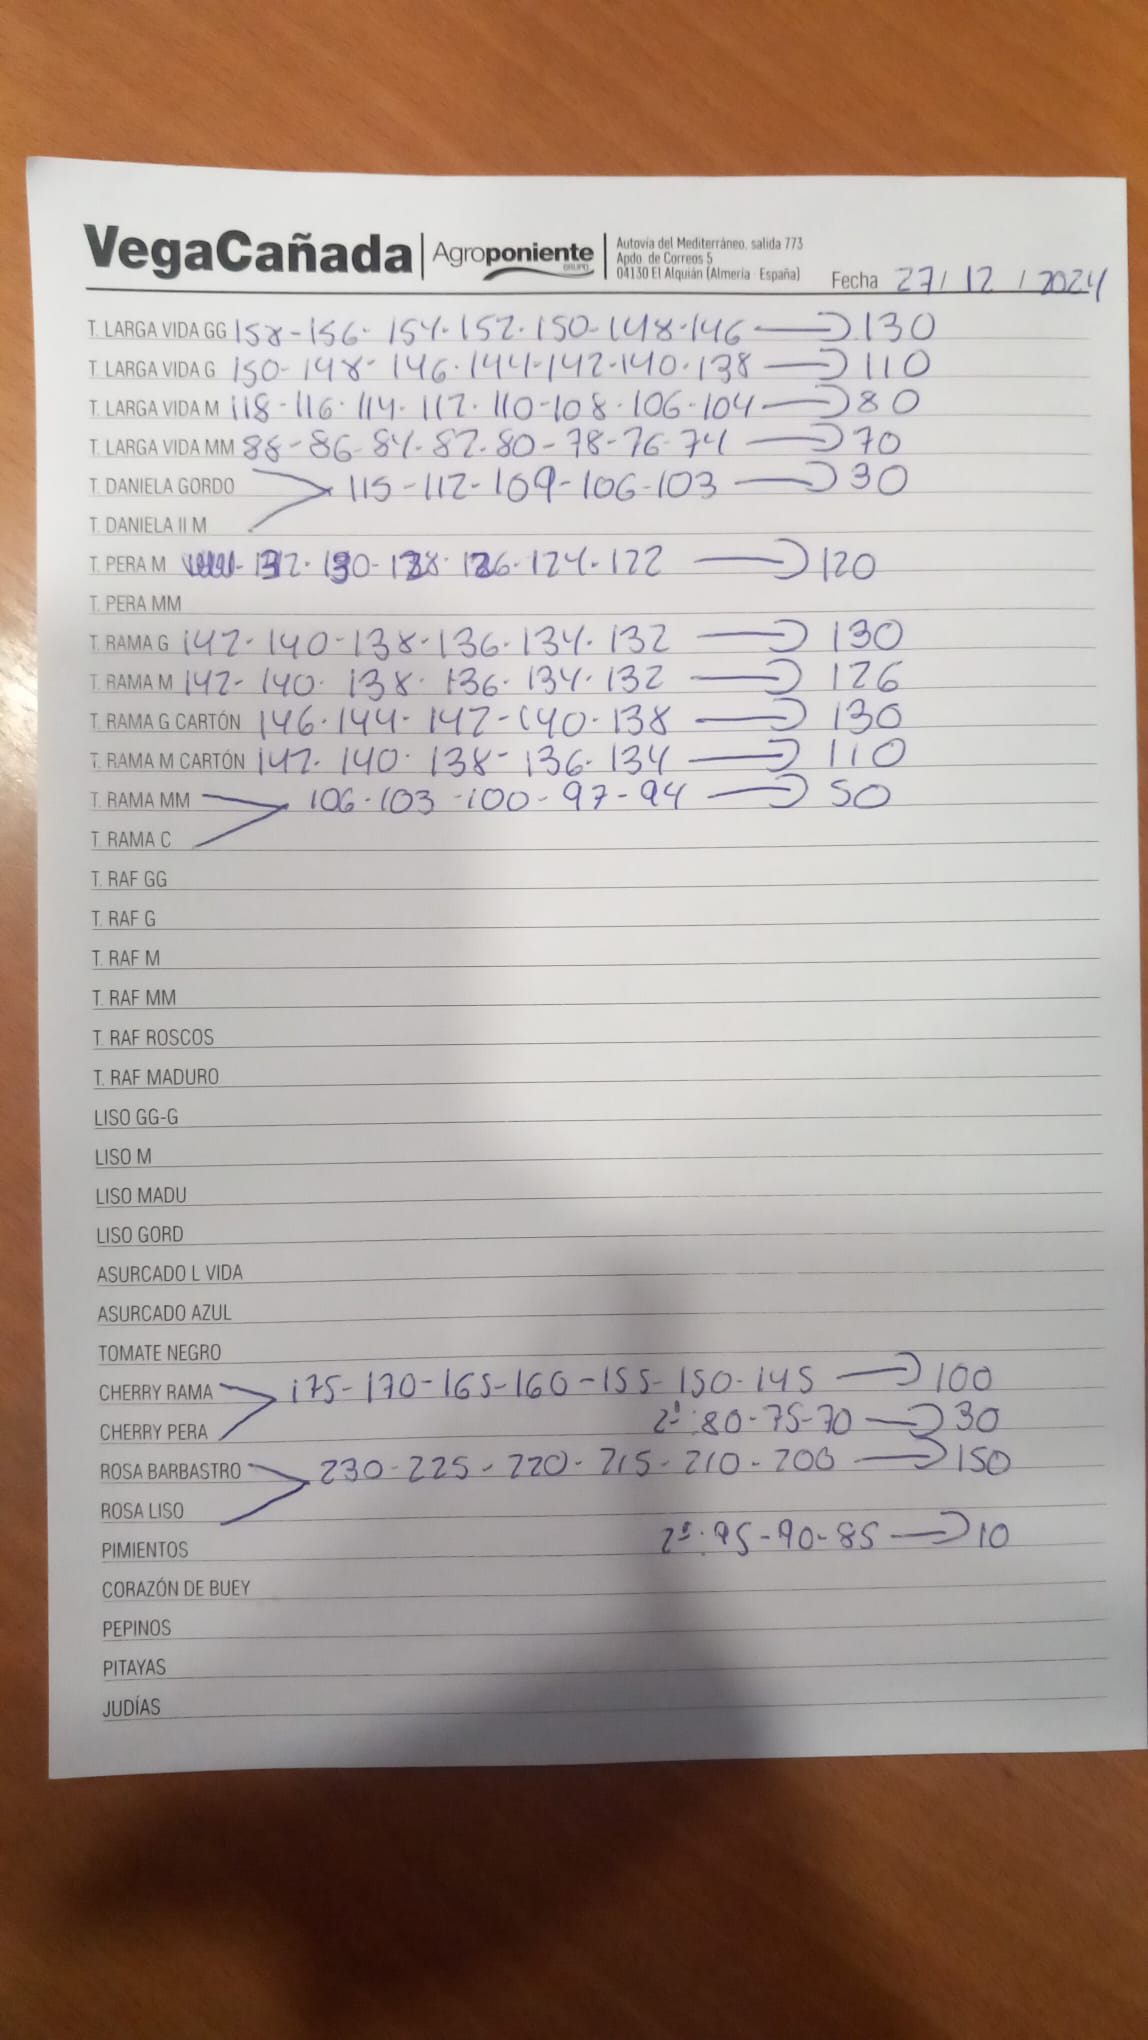 VegaCañada | Agroponiente GRUPO | Autovía del Mediterráneo, salida 773
Apdo. de Correos 5
04130 El Alquián (Almería · España)
Fecha 27/12/2024
T. LARGA VIDA GG 158-156-154-152-150-148-146 → 130
T. LARGA VIDA G 150-148-146-144-142-140-138 → 110
T. LARGA VIDA M 118-116-114-112-110-108-106-104 → 80
T. LARGA VIDA MM 88-86-84-82-80-78-76-74 → 70
T. DANIELA GORDO 115-112-109-106-103 → 30
T. DANIELA II M
T. PERA M 132-130-128-126-124-122 → 120
T. PERA MM
T. RAMA G 142-140-138-136-134-132 → 130
T. RAMA M 142-140-138-136-134-132 → 126
T. RAMA G CARTÓN 146-144-142-140-138 → 130
T. RAMA M CARTÓN 142-140-138-136-134 → 110
T. RAMA MM 106-103-100-97-94 → 50
T. RAMA C
T. RAF GG
T. RAF G
T. RAF M
T. RAF MM
T. RAF ROSCOS
T. RAF MADURO
LISO GG-G
LISO M
LISO MADU
LISO GORD
ASURCADO L VIDA
ASURCADO AZUL
TOMATE NEGRO
CHERRY RAMA 175-170-165-160-155-150-145 → 100
CHERRY PERA 2ª: 80-75-70 → 30
ROSA BARBASTRO 230-225-220-215-210-200 → 150
ROSA LISO
PIMIENTOS 2ª: 95-90-85 → 10
CORAZÓN DE BUEY
PEPINOS
PITAYAS
JUDÍAS